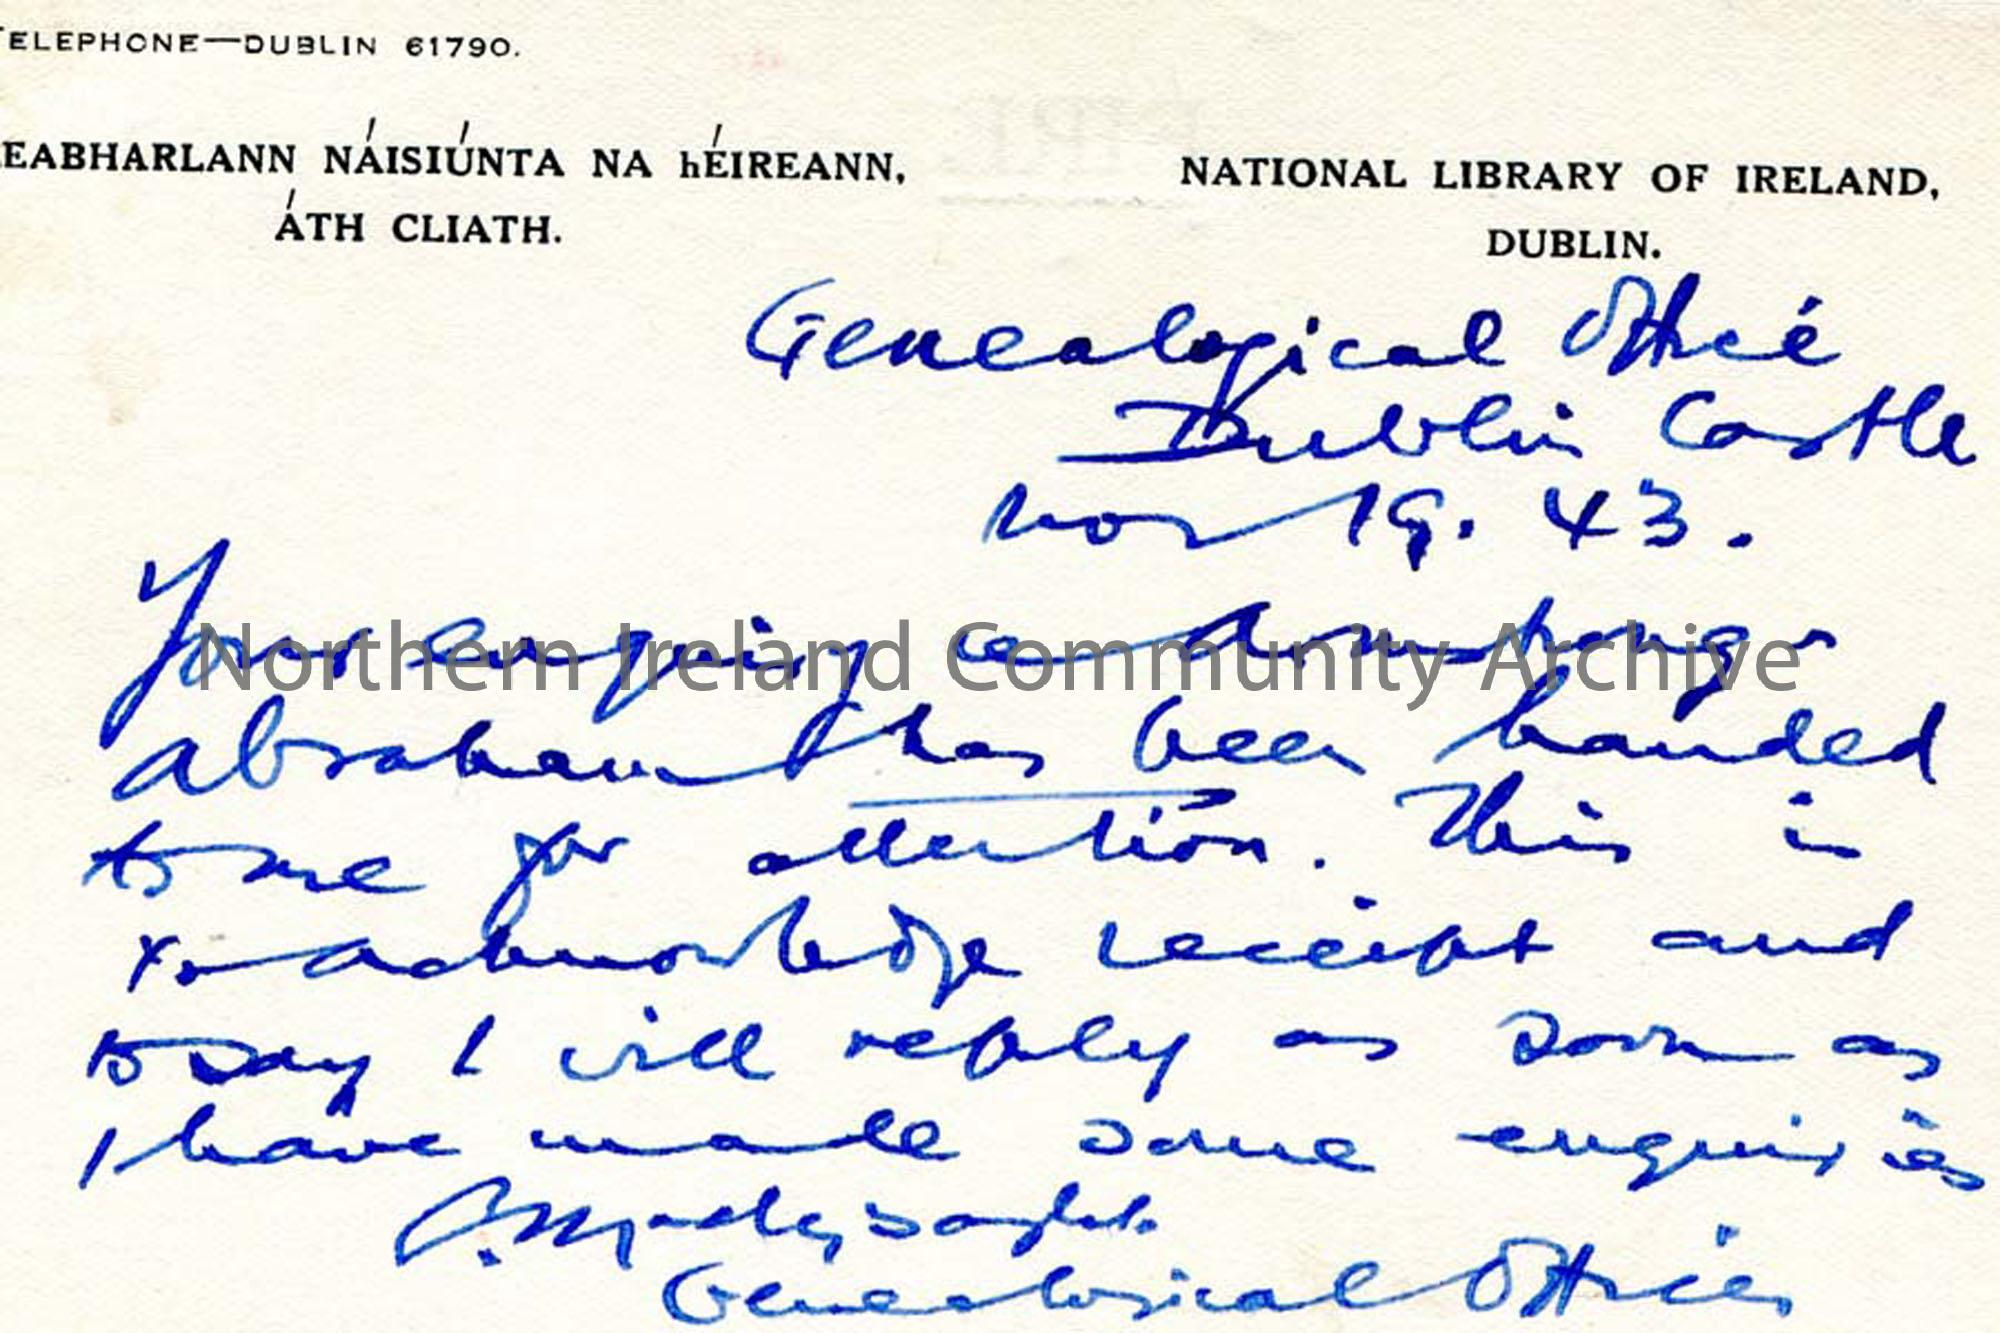 TELEPHONE—DUBLIN 61790.
LEABHARLANN NÁISIÚNTA NA hÉIREANN,
ÁTH CLIATH.
NATIONAL LIBRARY OF IRELAND,
DUBLIN.
Genealogical Office
Dublin Castle
Nov 19. 43.
Your enquiry re
Northern Ireland Community Archive
Abraham has been handed
to me for attention. This is
to acknowledge receipt and
to say I will reply as soon as
I have made some enquiries
Genealogical Officer